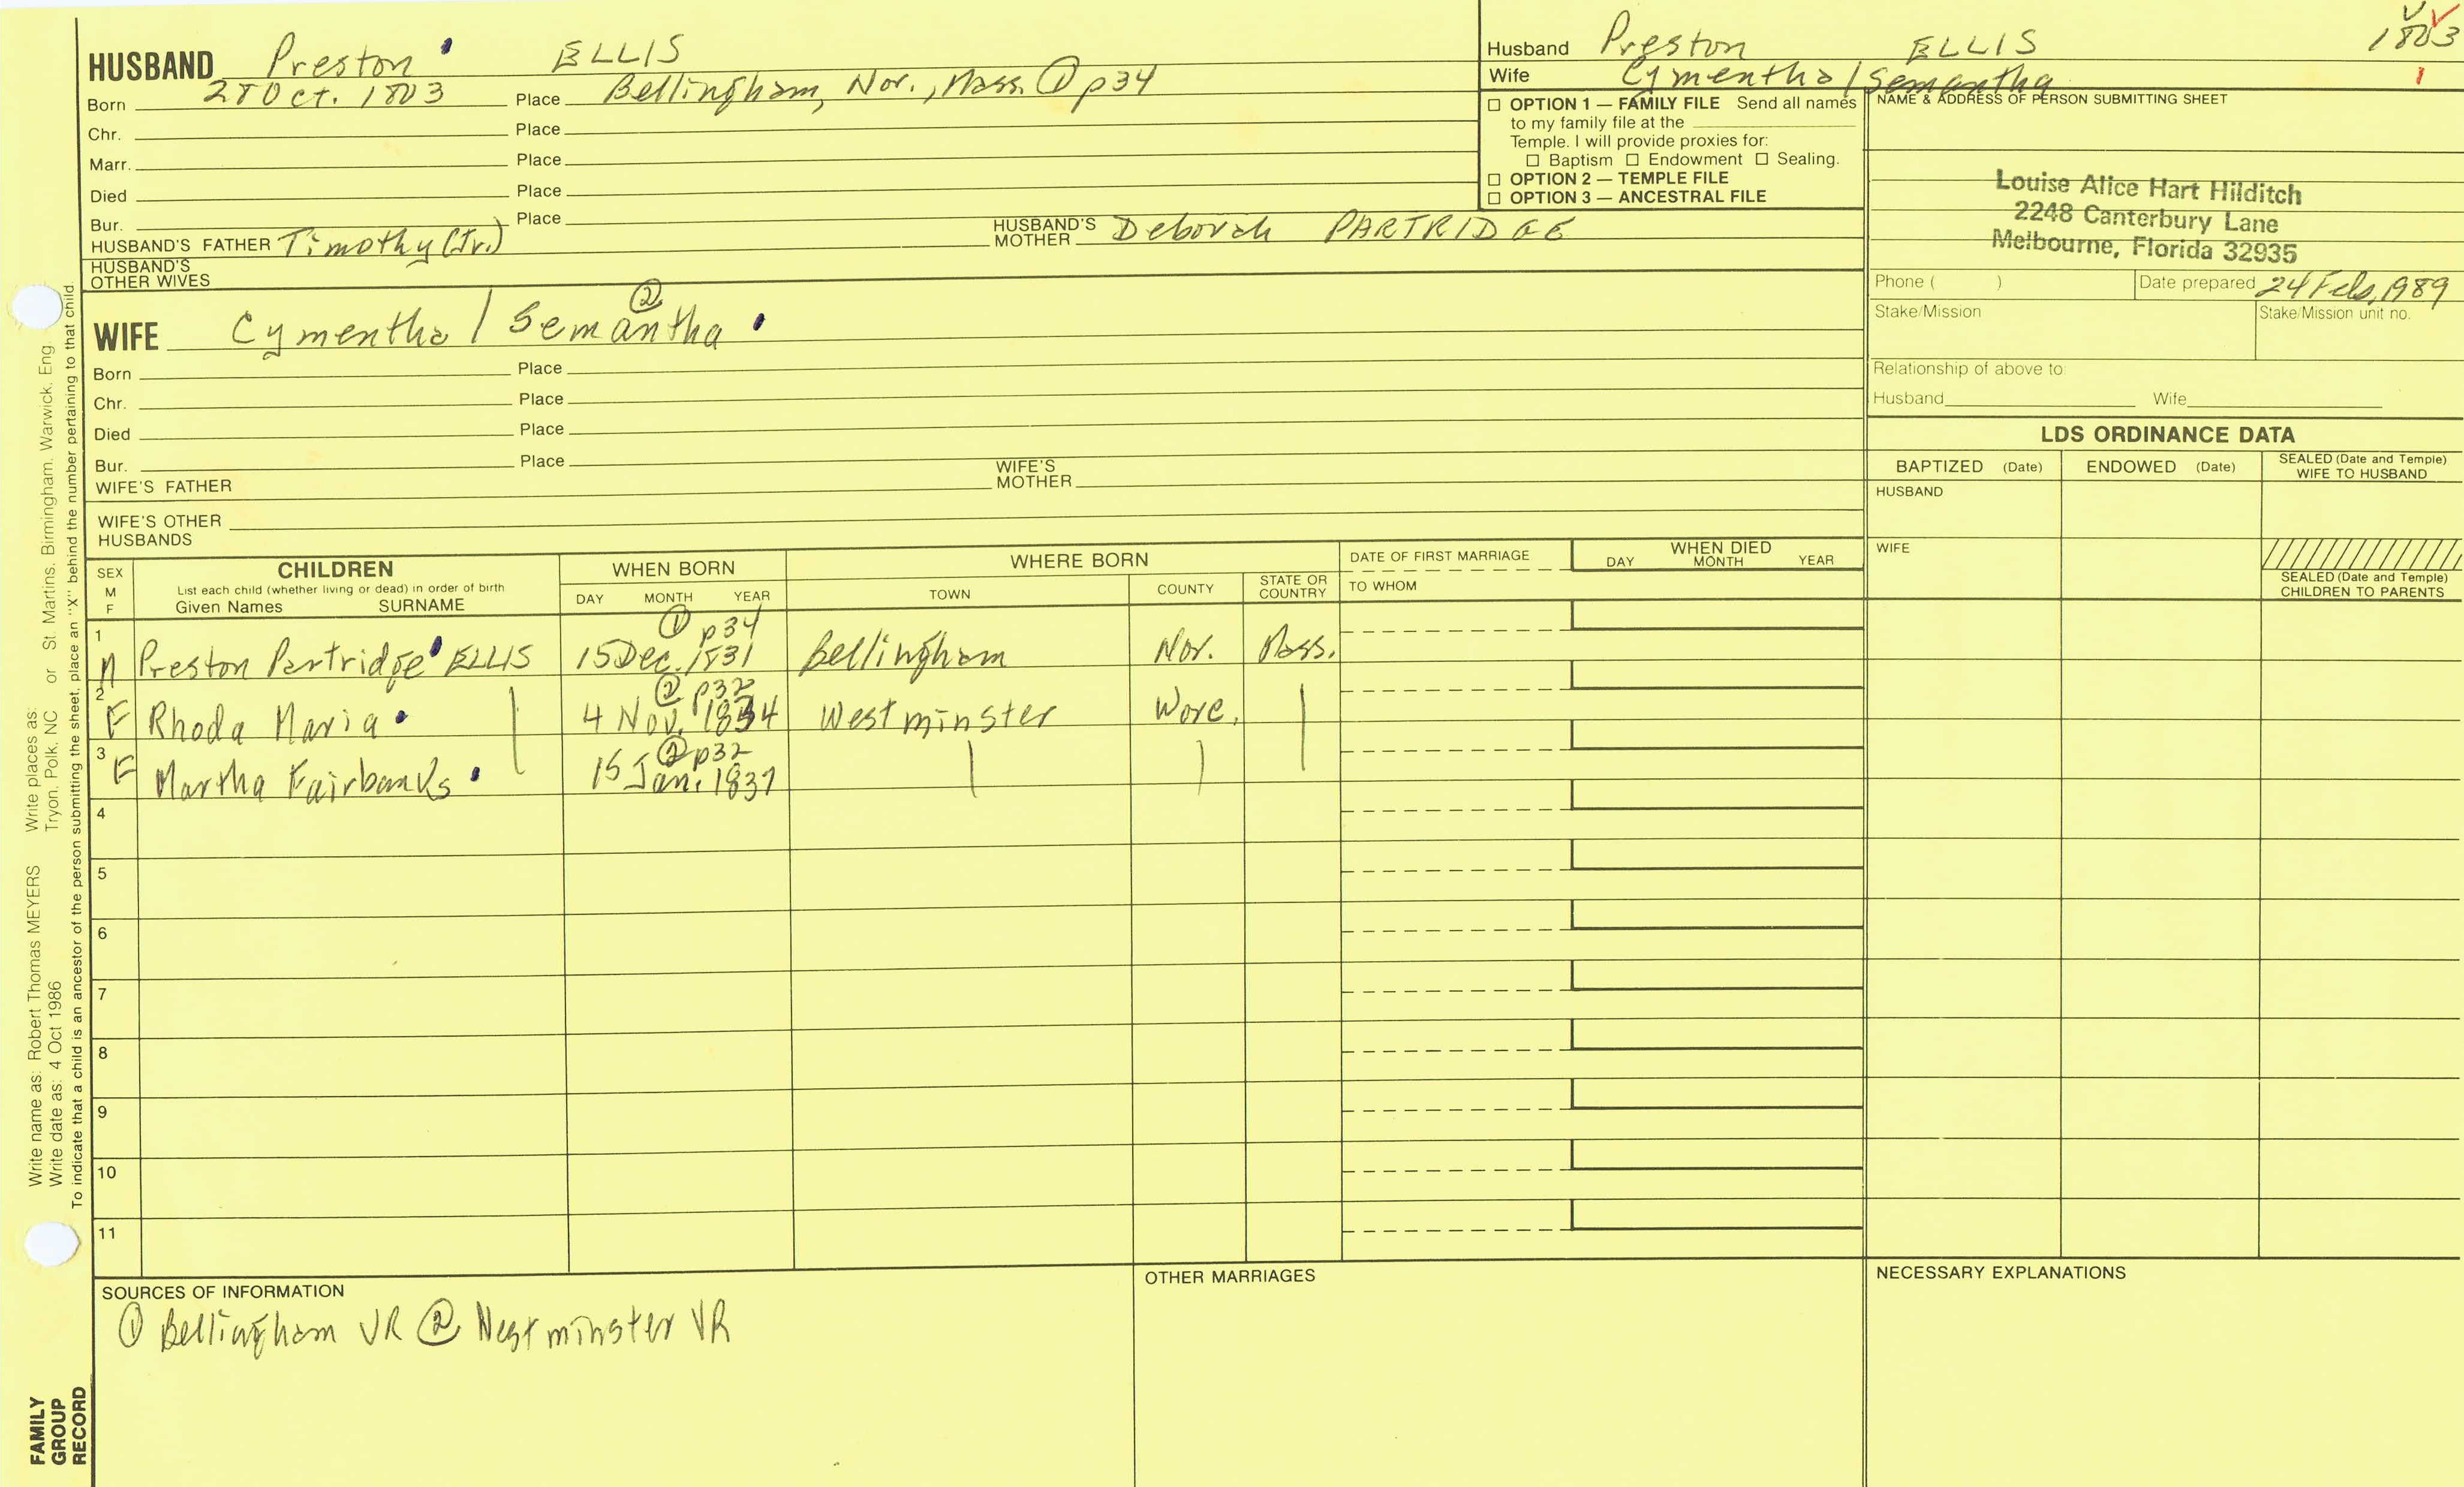 HUSBAND Preston ELLIS
Born 28 Oct. 1803 Place Bellingham, Nor., Mass. ① p34
Chr. Place
Marr. Place
Died Place
Bur. Place
HUSBAND'S FATHER Timothy (Jr.) HUSBAND'S MOTHER Deborah PARTRIDGE
HUSBAND'S OTHER WIVES
WIFE Cymentha / Semantha ②
Born Place
Chr. Place
Died Place
Bur. Place
WIFE'S FATHER WIFE'S MOTHER
WIFE'S OTHER HUSBANDS
Husband Preston ELLIS 1803
Wife Cymentha / Semantha 1
☐ OPTION 1 — FAMILY FILE Send all names
to my family file at the
Temple. I will provide proxies for:
☐ Baptism ☐ Endowment ☐ Sealing.
☐ OPTION 2 — TEMPLE FILE
☐ OPTION 3 — ANCESTRAL FILE
NAME & ADDRESS OF PERSON SUBMITTING SHEET
Louise Alice Hart Hilditch
2248 Canterbury Lane
Melbourne, Florida 32935
Phone ( ) Date prepared 24 Feb, 1989
Stake/Mission Stake/Mission unit no.
Relationship of above to:
Husband Wife
LDS ORDINANCE DATA
BAPTIZED (Date) ENDOWED (Date) SEALED (Date and Temple) WIFE TO HUSBAND
HUSBAND
WIFE
SEALED (Date and Temple)
CHILDREN TO PARENTS
SEX M F CHILDREN WHEN BORN WHERE BORN DATE OF FIRST MARRIAGE WHEN DIED
List each child (whether living or dead) in order of birth
Given Names SURNAME DAY MONTH YEAR TOWN COUNTY STATE OR COUNTRY TO WHOM DAY MONTH YEAR
① p34
1 M Preston Partridge ELLIS 15 Dec. 1831 Bellingham Nor. Mass.
② p32
2 F Rhoda Maria 4 Nov. 1834 Westminster Worc.
② p32
3 F Martha Fairbanks 15 Jan. 1837
4
5
6
7
8
9
10
11
SOURCES OF INFORMATION
① Bellingham VR ② Westminster VR
OTHER MARRIAGES
NECESSARY EXPLANATIONS
Write name as: Robert Thomas MEYERS Write places as: St. Martins, Birmingham, Warwick, Eng.
Write date as: 4 Oct 1986 Tryon, Polk, NC or
To indicate that a child is an ancestor of the person submitting the sheet, place an "X" behind the number pertaining to that child.
FAMILY
GROUP
RECORD